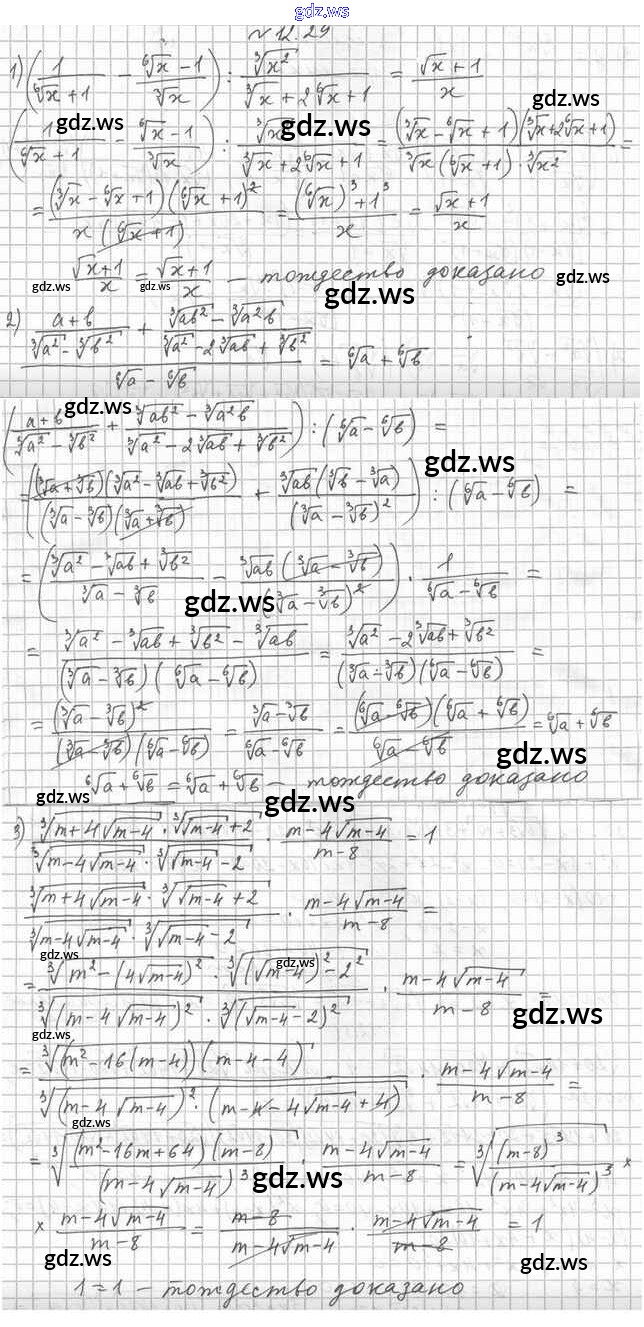 gdz.ws
№12.29
1) (1/(⁶√x + 1) − (⁶√x − 1)/³√x) : ³√x²/(³√x + 2⁶√x + 1) = (√x + 1)/x
(1/(⁶√x + 1) − (⁶√x − 1)/³√x) : ³√x²/(³√x + 2⁶√x + 1) = (³√x − ⁶√x + 1)(³√x + 2⁶√x + 1)/(³√x(⁶√x + 1) · ³√x²) =
= (³√x − ⁶√x + 1)(⁶√x + 1)²/(x(⁶√x + 1)) = ((⁶√x)³ + 1³)/x = (√x + 1)/x
(√x + 1)/x = (√x + 1)/x − тождество доказано
2) ((a + b)/(³√a² − ³√b²) + (³√ab² − ³√a²b)/(³√a² − 2³√ab + ³√b²))/(⁶√a − ⁶√b) = ⁶√a + ⁶√b
((a + b)/(³√a² − ³√b²) + (³√ab² − ³√a²b)/(³√a² − 2³√ab + ³√b²)) : (⁶√a − ⁶√b) =
= ((³√a + ³√b)(³√a² − ³√ab + ³√b²)/((³√a − ³√b)(³√a + ³√b)) + ³√ab(³√b − ³√a)/(³√a − ³√b)²) : (⁶√a − ⁶√b) =
= ((³√a² − ³√ab + ³√b²)/(³√a − ³√b) − ³√ab(³√a − ³√b)/(³√a − ³√b)²) · 1/(⁶√a − ⁶√b) =
= (³√a² − ³√ab + ³√b² − ³√ab)/((³√a − ³√b)(⁶√a − ⁶√b)) = (³√a² − 2³√ab + ³√b²)/((³√a − ³√b)(⁶√a − ⁶√b)) =
= (³√a − ³√b)²/((³√a − ³√b)(⁶√a − ⁶√b)) = (³√a − ³√b)/(⁶√a − ⁶√b) = (⁶√a − ⁶√b)(⁶√a + ⁶√b)/(⁶√a − ⁶√b) = ⁶√a + ⁶√b
⁶√a + ⁶√b = ⁶√a + ⁶√b − тождество доказано
3) (³√(m + 4√(m−4)) · ³√(√(m−4) + 2))/(³√(m − 4√(m−4)) · ³√(√(m−4) − 2)) · (m − 4√(m−4))/(m − 8) = 1
(³√(m + 4√(m−4)) · ³√(√(m−4) + 2))/(³√(m − 4√(m−4)) · ³√(√(m−4) − 2)) · (m − 4√(m−4))/(m − 8) =
= (³√(m² − (4√(m−4))²) · ³√((√(m−4))² − 2²))/(³√((m − 4√(m−4))²) · ³√((√(m−4) − 2)²)) · (m − 4√(m−4))/(m − 8) =
= ³√((m² − 16(m−4))(m − 4 − 4))/³√((m − 4√(m−4))² · (m − 4 − 4√(m−4) + 4)) · (m − 4√(m−4))/(m − 8) =
= ³√((m² − 16m + 64)(m − 8)/(m − 4√(m−4))³) · (m − 4√(m−4))/(m − 8) = ³√((m − 8)³/(m − 4√(m−4))³) ×
× (m − 4√(m−4))/(m − 8) = (m − 8)/(m − 4√(m−4)) · (m − 4√(m−4))/(m − 8) = 1
1 = 1 − тождество доказано